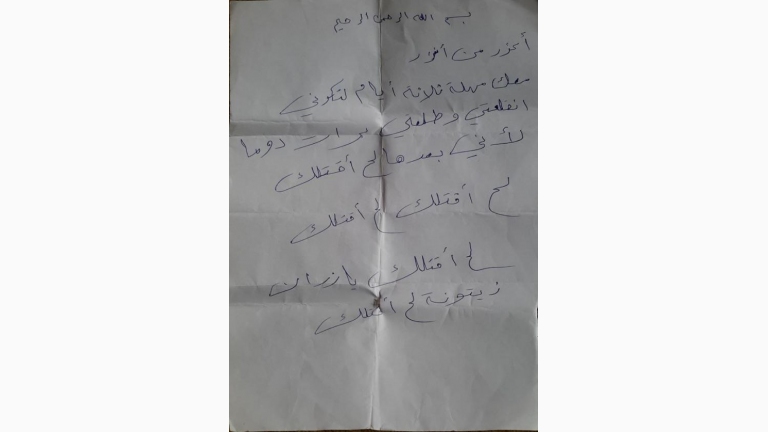 بسم الله الرحمن الرحيم
أعزر من أنزر
معك مهلة ثلاثة أيام لتكوني
انقلعتي وطلعتي برات دوما
لأني بعدها لح أقتلك
لح أقتلك لح أقتلك
لح أقتلك يا رزان
زيتونة لح اقتلك